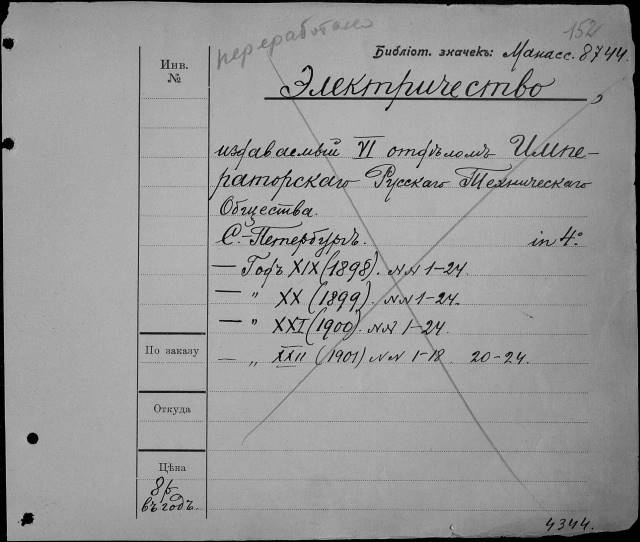 152
переработано
Библіот. значекъ: Манасс. 8744.
Инв.
№
Электричество,
издаваемый VI отдѣломъ Импе-
раторскаго Русскаго Техническаго
Общества.
С.-Петербургъ. in 4°
— Годъ XIX (1898). №№ 1-24.
— " XX (1899). №№ 1-24.
— " XXI (1900). №№ 1-24.
— " XXII (1901) №№ 1-18. 20-24.
По заказу
Откуда
Цѣна
8 р.
въ годъ.
4344.